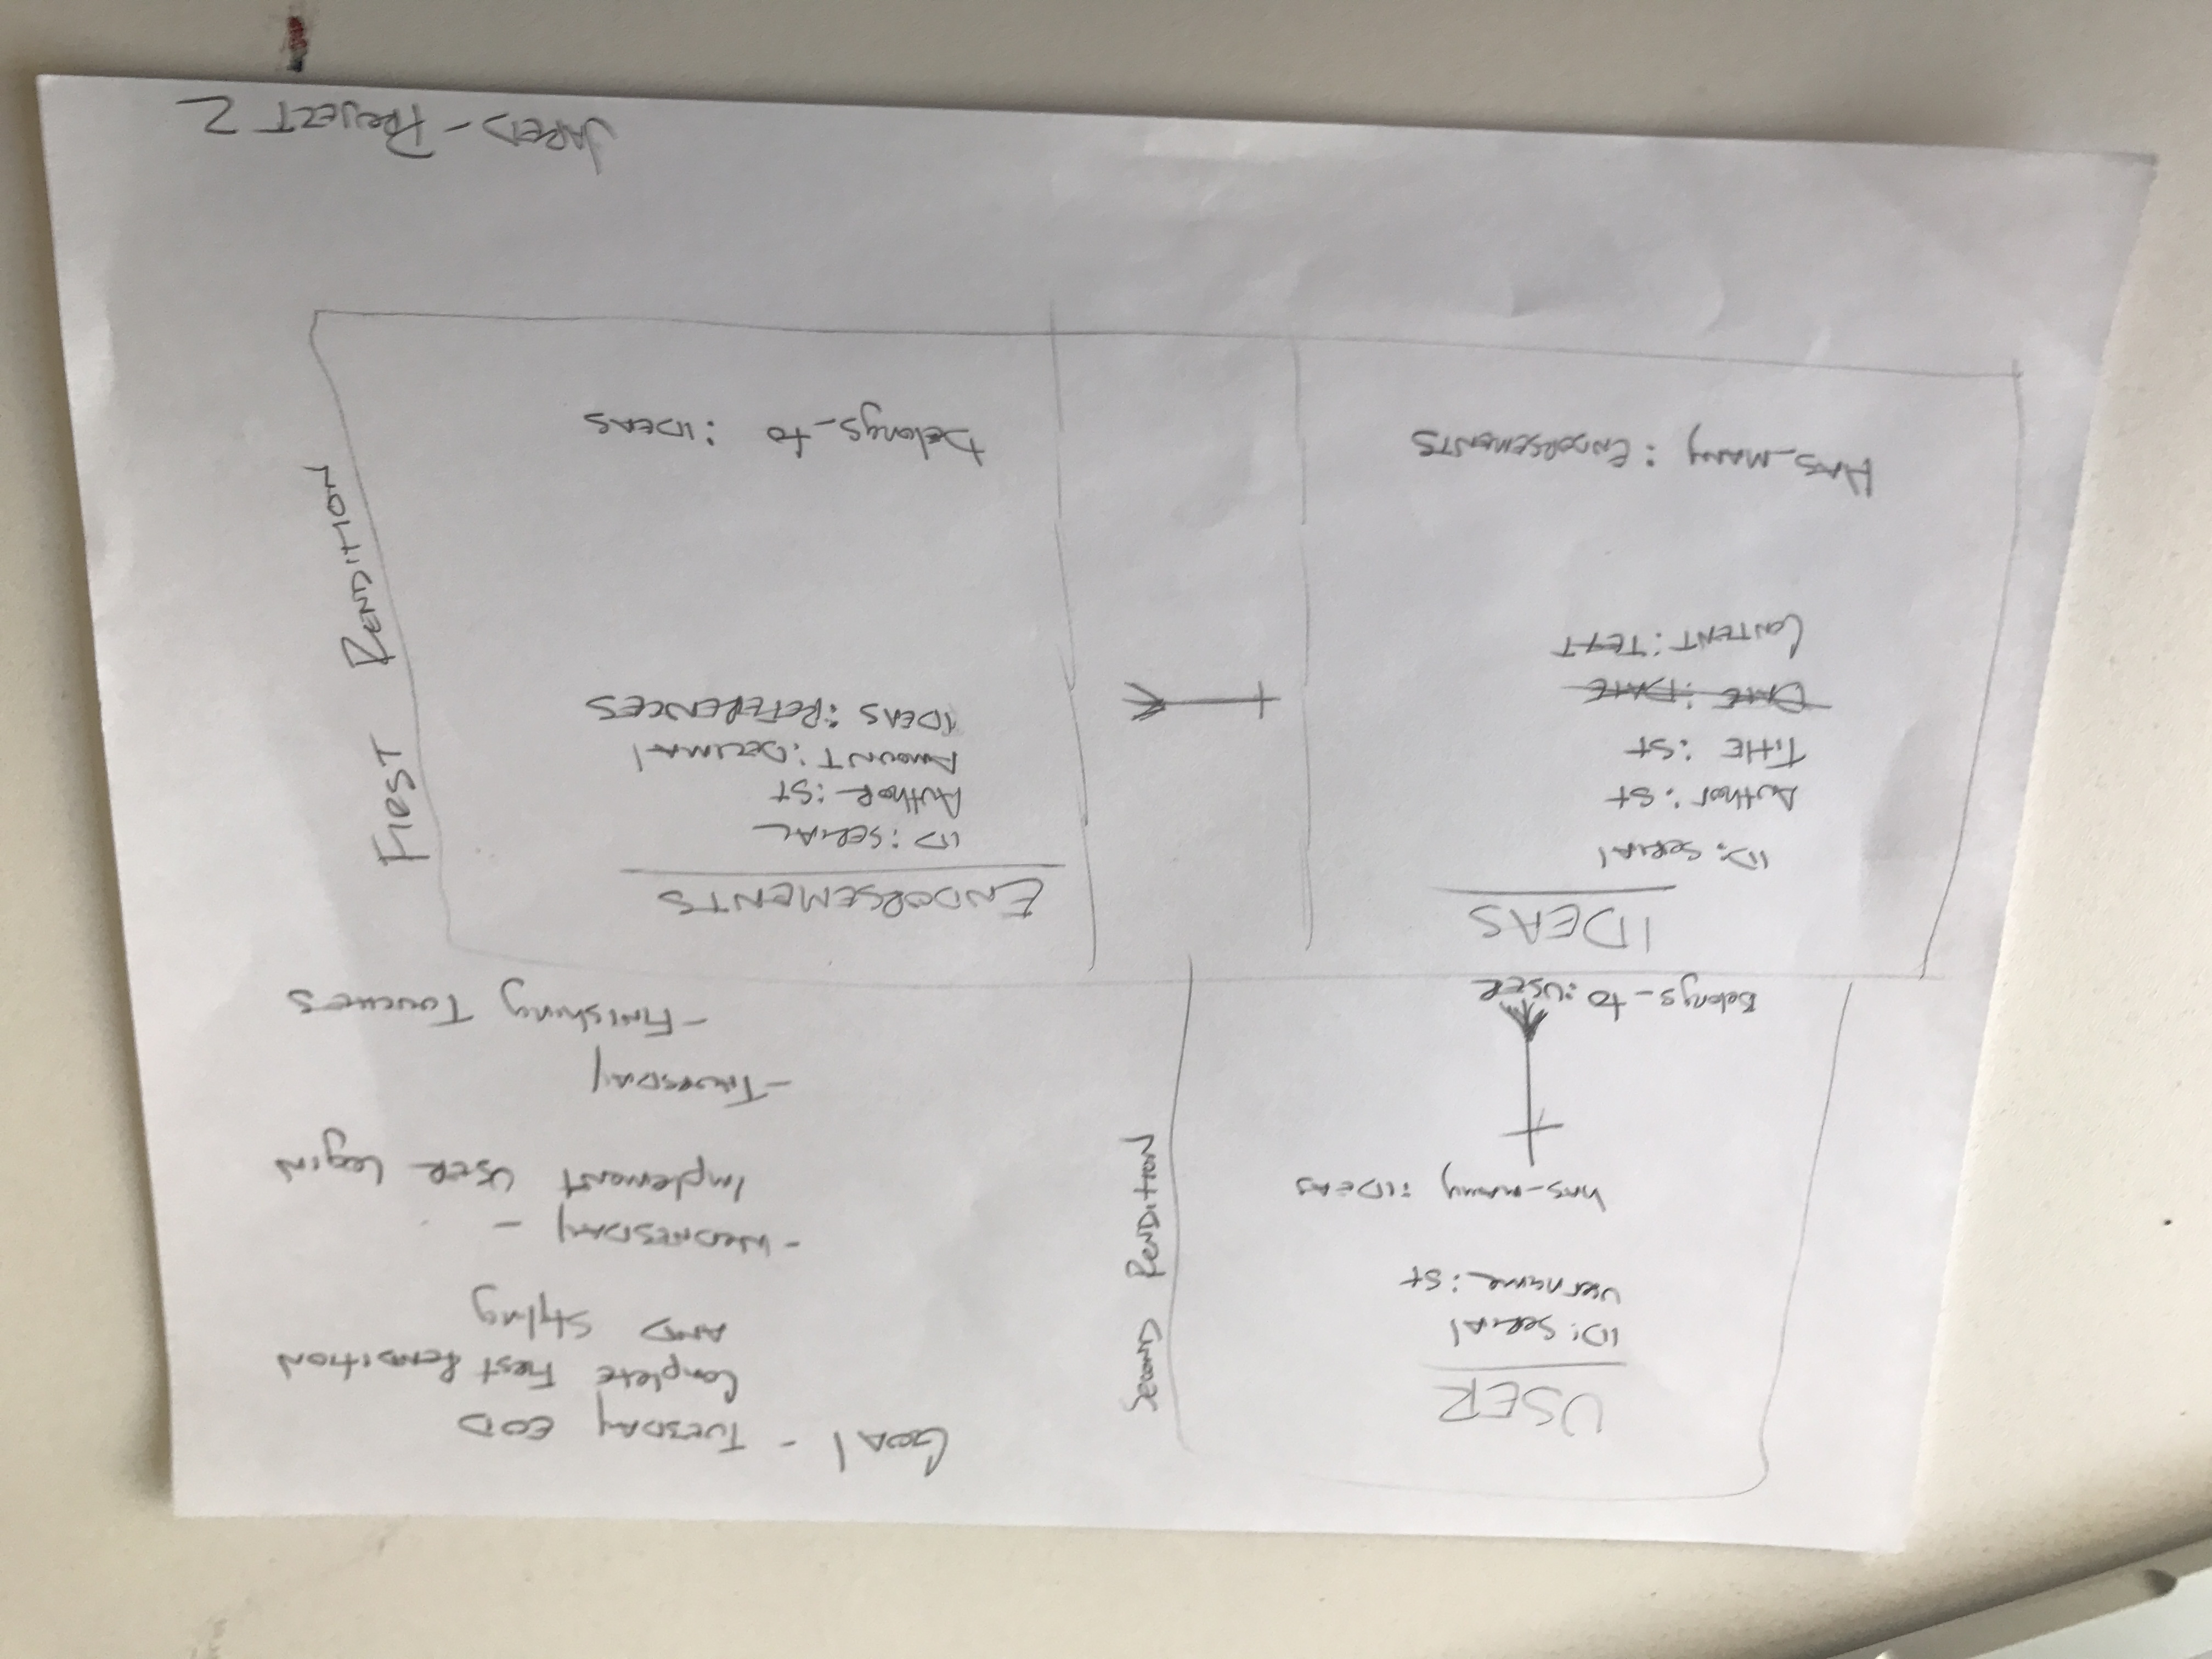 USER
ID: SERIAL
username: St
has_many :IDEAS
Belongs_to :USER
SECOND RENDITION
GOAL - TUESDAY EOD
Complete First Rendition
AND Styling
- WEDNESDAY -
Implement USER Login
- THURSDAY
- Finishing TOUCHES
IDEAS
ID: SERIAL
Author: St
TITLE :St
DATE :DATE
CONTENT: TEXT
HAS_MANY : ENDORSEMENTS
ENDORSEMENTS
ID :SERIAL
AUTHOR :St
AMOUNT :DECIMAL
IDEAS :REFERENCES
belongs_to :IDEAS
FIRST RENDITION
JARED - PROJECT 2